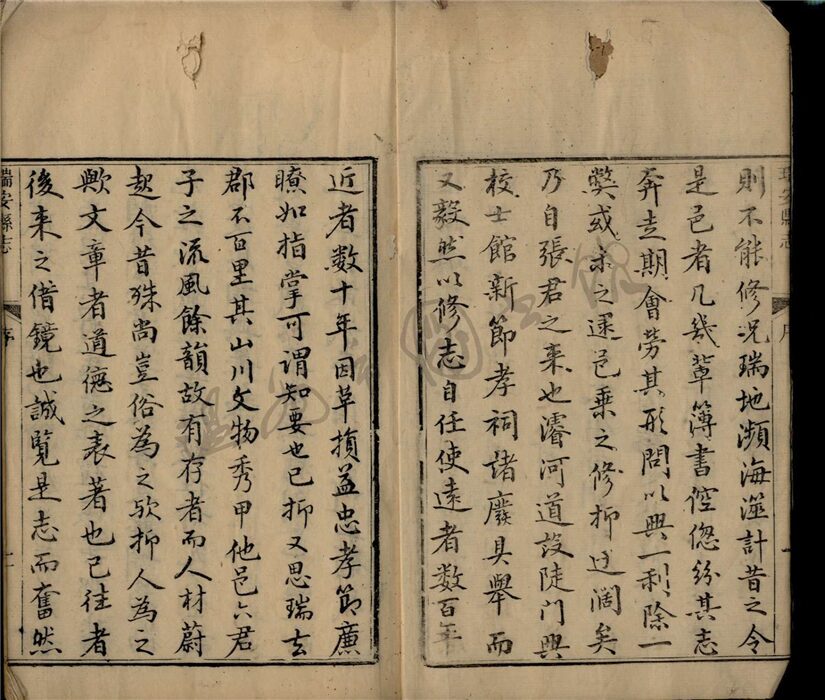 則不能修况瑞地瀕海澨計昔之令
是邑者凡幾軰簿書倥偬紛其志
奔走期會勞其形問以興一利除一
獘或未之遑邑乗之修抑迂濶矣
乃自張君之来也濬河道設陡門興
校士館新節孝祠諸廢具舉而
又毅然以修志自任使遠者數百年
近者数十年因革損益忠孝節廉
瞭如指掌可謂知要也已抑又思瑞去
郡不百里其山川文物秀甲他邑六君
子之流風餘韻故有存者而人材蔚
起今昔殊尚豈俗為之歟抑人為之
歟文章者道德之表著也已往者
後来之借鏡也誠覽是志而奮然
瑞安縣志
序